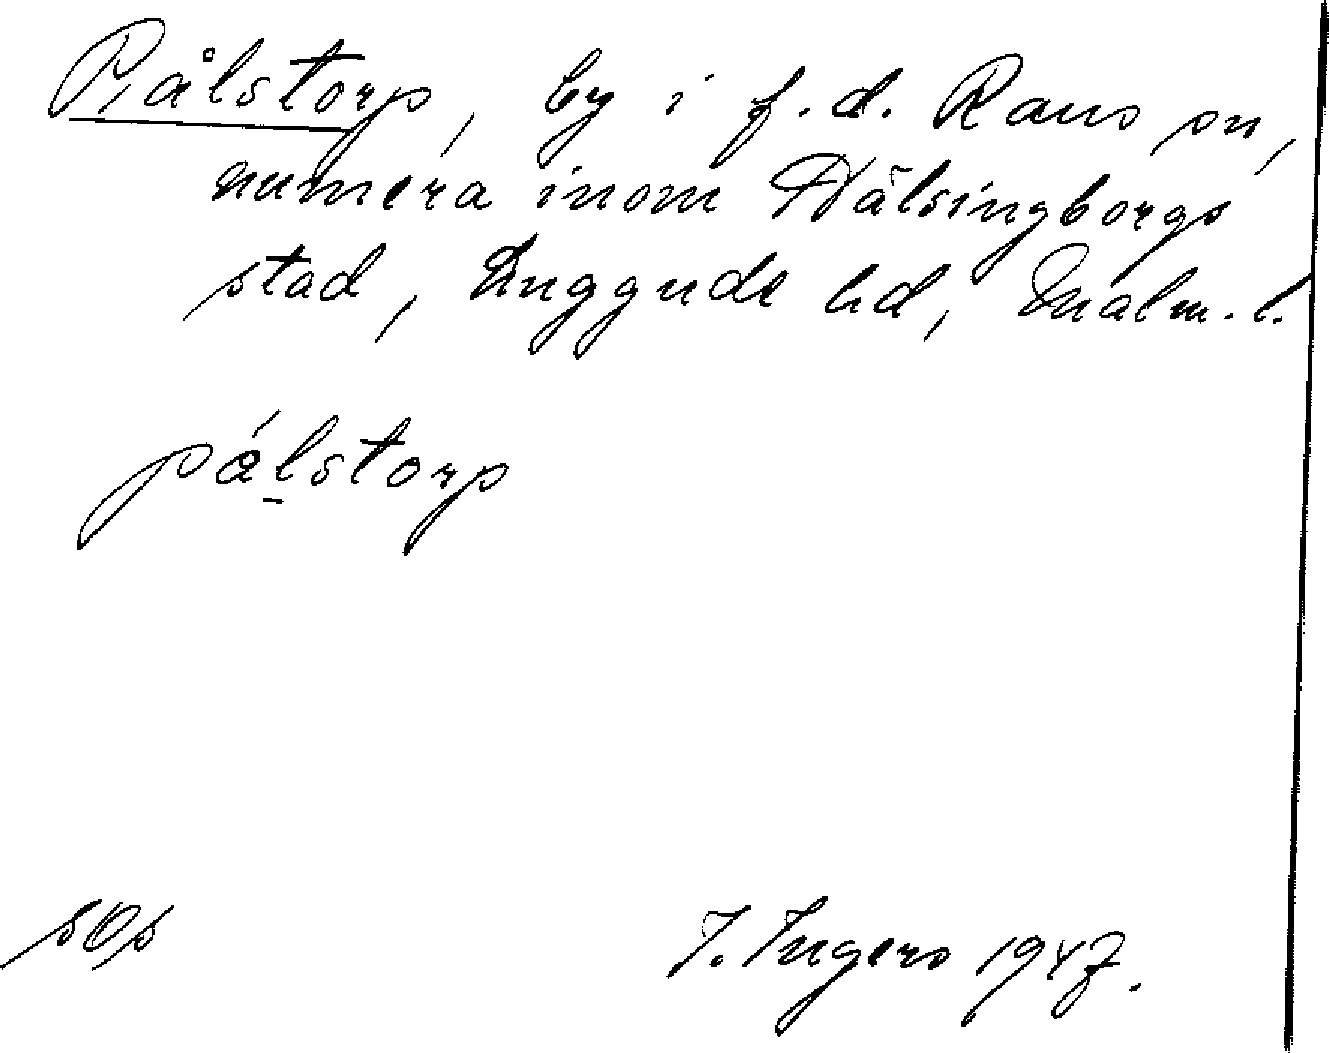 Pålstorp, by i f.d. Raus sn,
numera inom Hälsingborgs
stad, Luggude hd, Malm. l.
pálstorp
sOs
I. Ingers 1947.